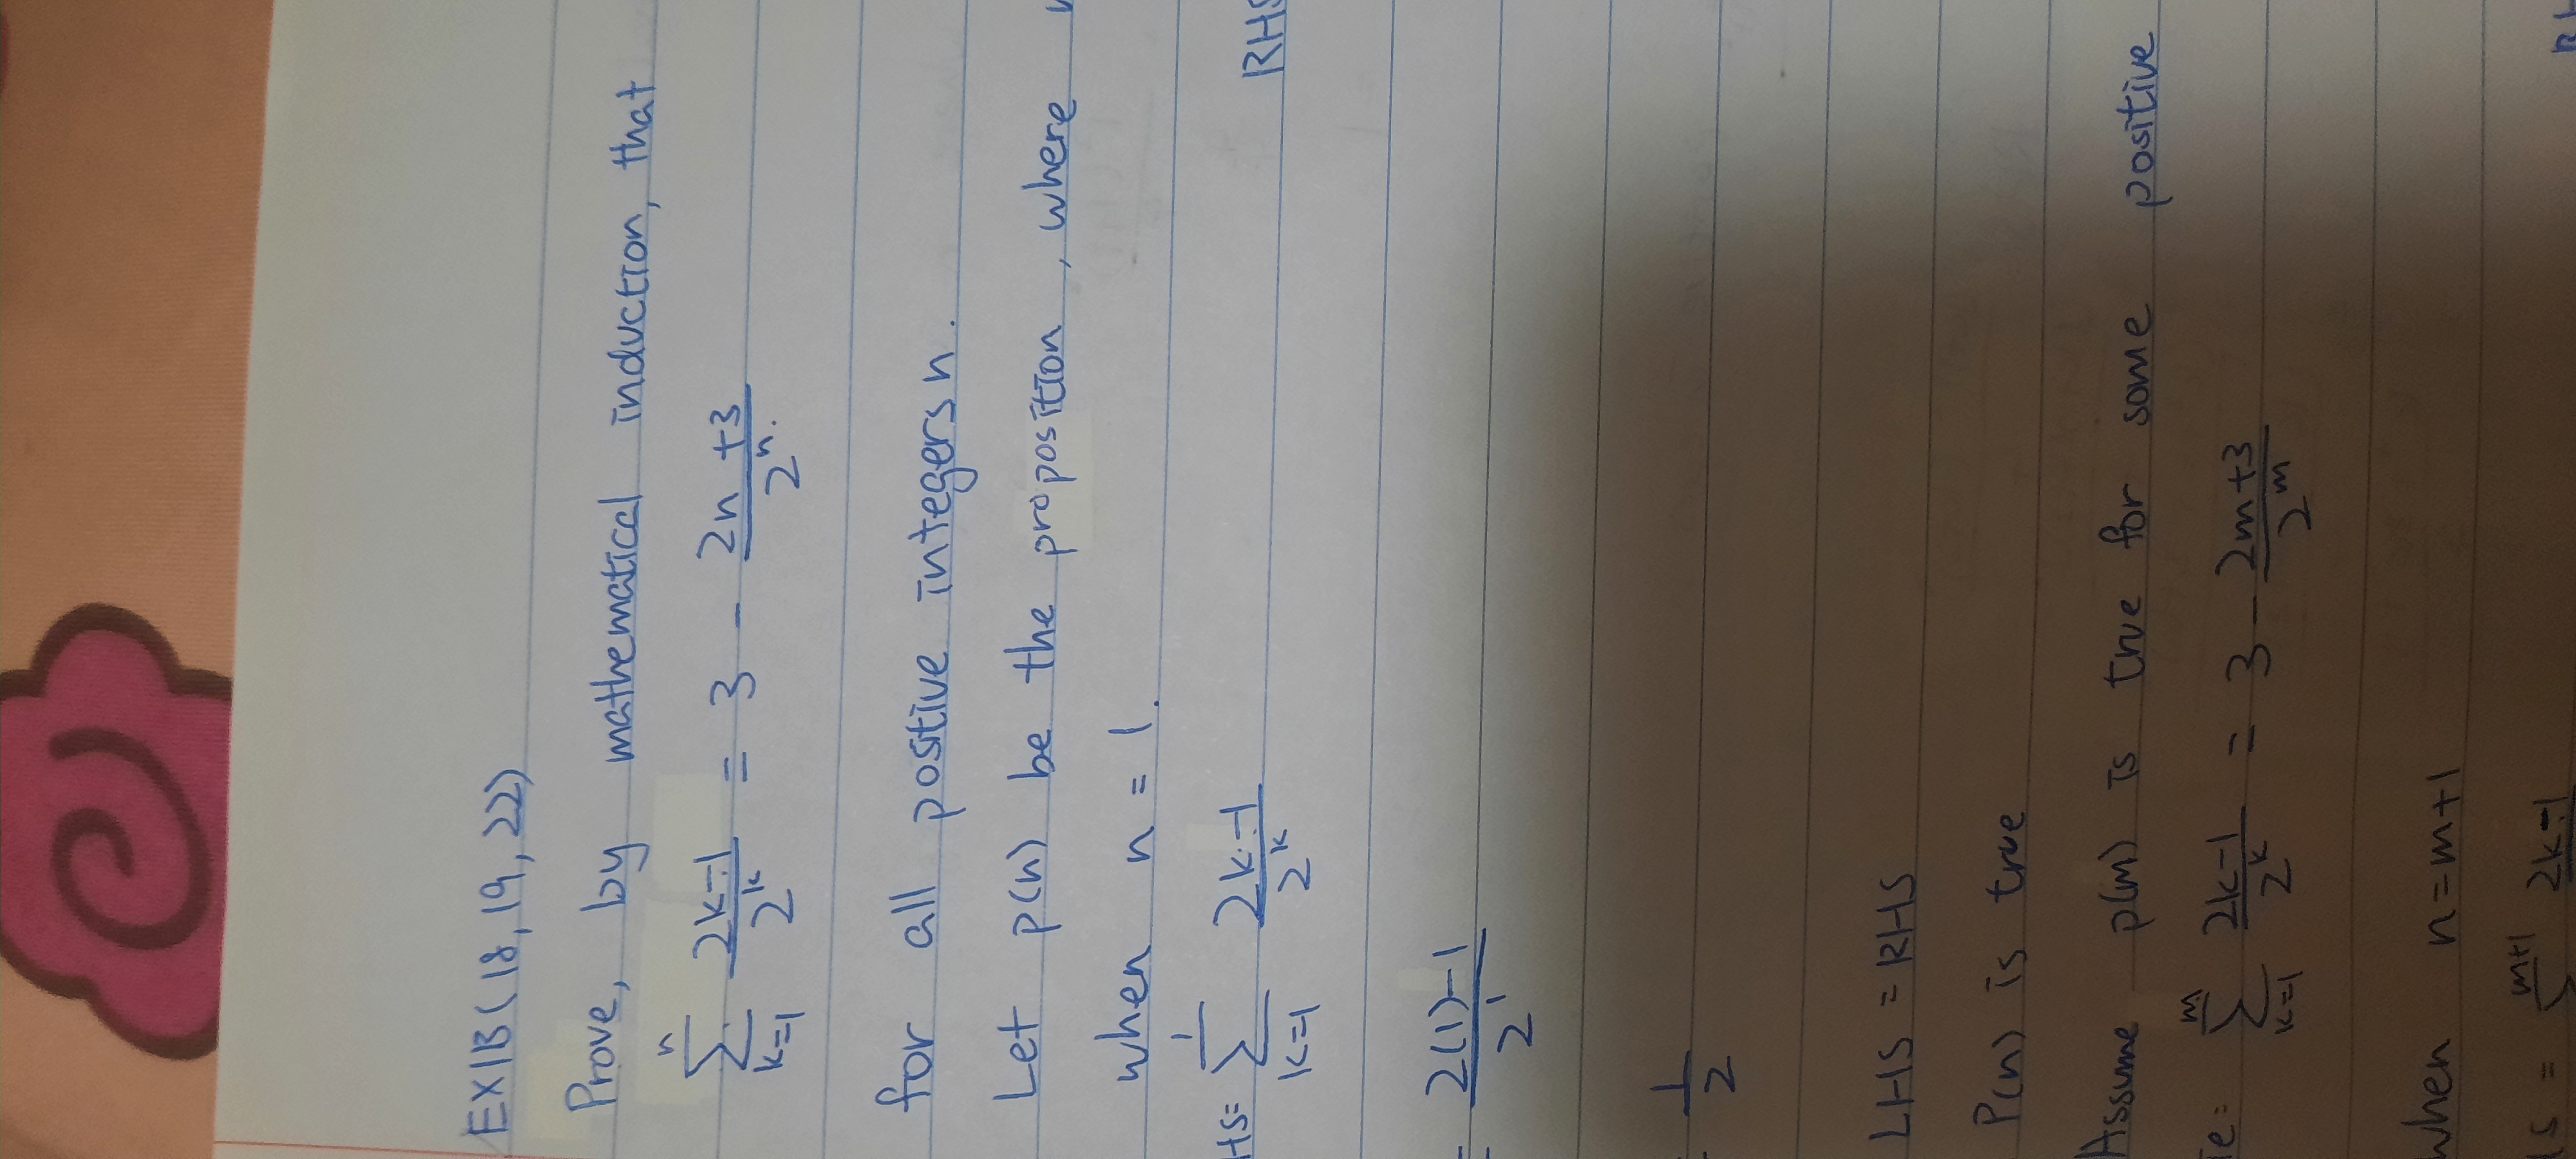 EX1B(18,19,22)
Prove, by mathematical induction, that
∑_{k=1}^{n} (2k-1)/2^k = 3 - (2n+3)/2^n.
for all positive integers n.
Let p(n) be the proposition, where
when n = 1.
HS= ∑_{k=1}^{1} (2k-1)/2^k RHS
= (2(1)-1)/2^1
= 1/2
LHS = RHS
P(n) is true
Assume p(m) is true for some positive
ie: ∑_{k=1}^{m} (2k-1)/2^k = 3 - (2m+3)/2^m
when n=m+1
HS = ∑^{m+1} 2k-1